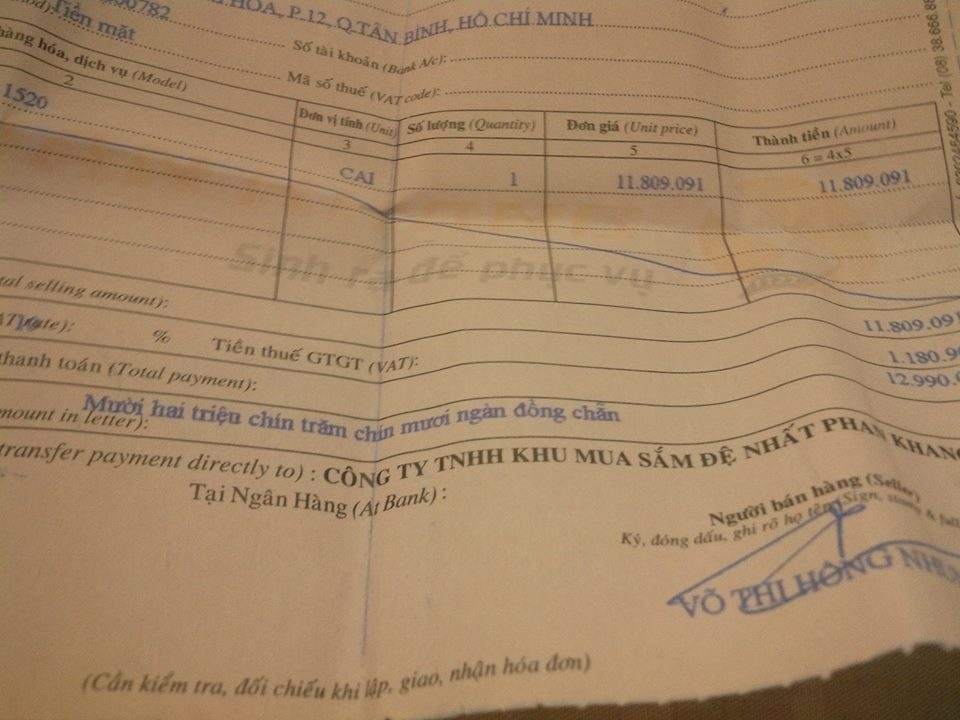 HÒA, P.12, Q.TÂN BÌNH, HỒ CHÍ MINH
Tiền mặt
Số tài khoản (Bank A/c):
Mã số thuế (VAT code):
hàng hóa, dịch vụ (Model) Đơn vị tính (Unit) Số lượng (Quantity) Đơn giá (Unit price) Thành tiền (Amount)
2 3 4 5 6 = 4x5
1520 CAI 1 11.809.091 11.809.091
Sinh ra để phục vụ
selling amount): 11.809.091
% Tiền thuế GTGT (VAT): 1.180.9
thanh toán (Total payment): 12.990.
Mười hai triệu chín trăm chín mươi ngàn đồng chẵn
in letter):
transfer payment directly to) : CÔNG TY TNHH KHU MUA SẮM ĐỆ NHẤT PHAN KHANG
Tại Ngân Hàng (At Bank) :
Người bán hàng (Seller)
Ký, đóng dấu, ghi rõ họ tên (Sign, & full
VÕ THỊ HỒNG
(Cần kiểm tra, đối chiếu khi lập, giao, nhận hóa đơn)
Tel (08) 38.666.